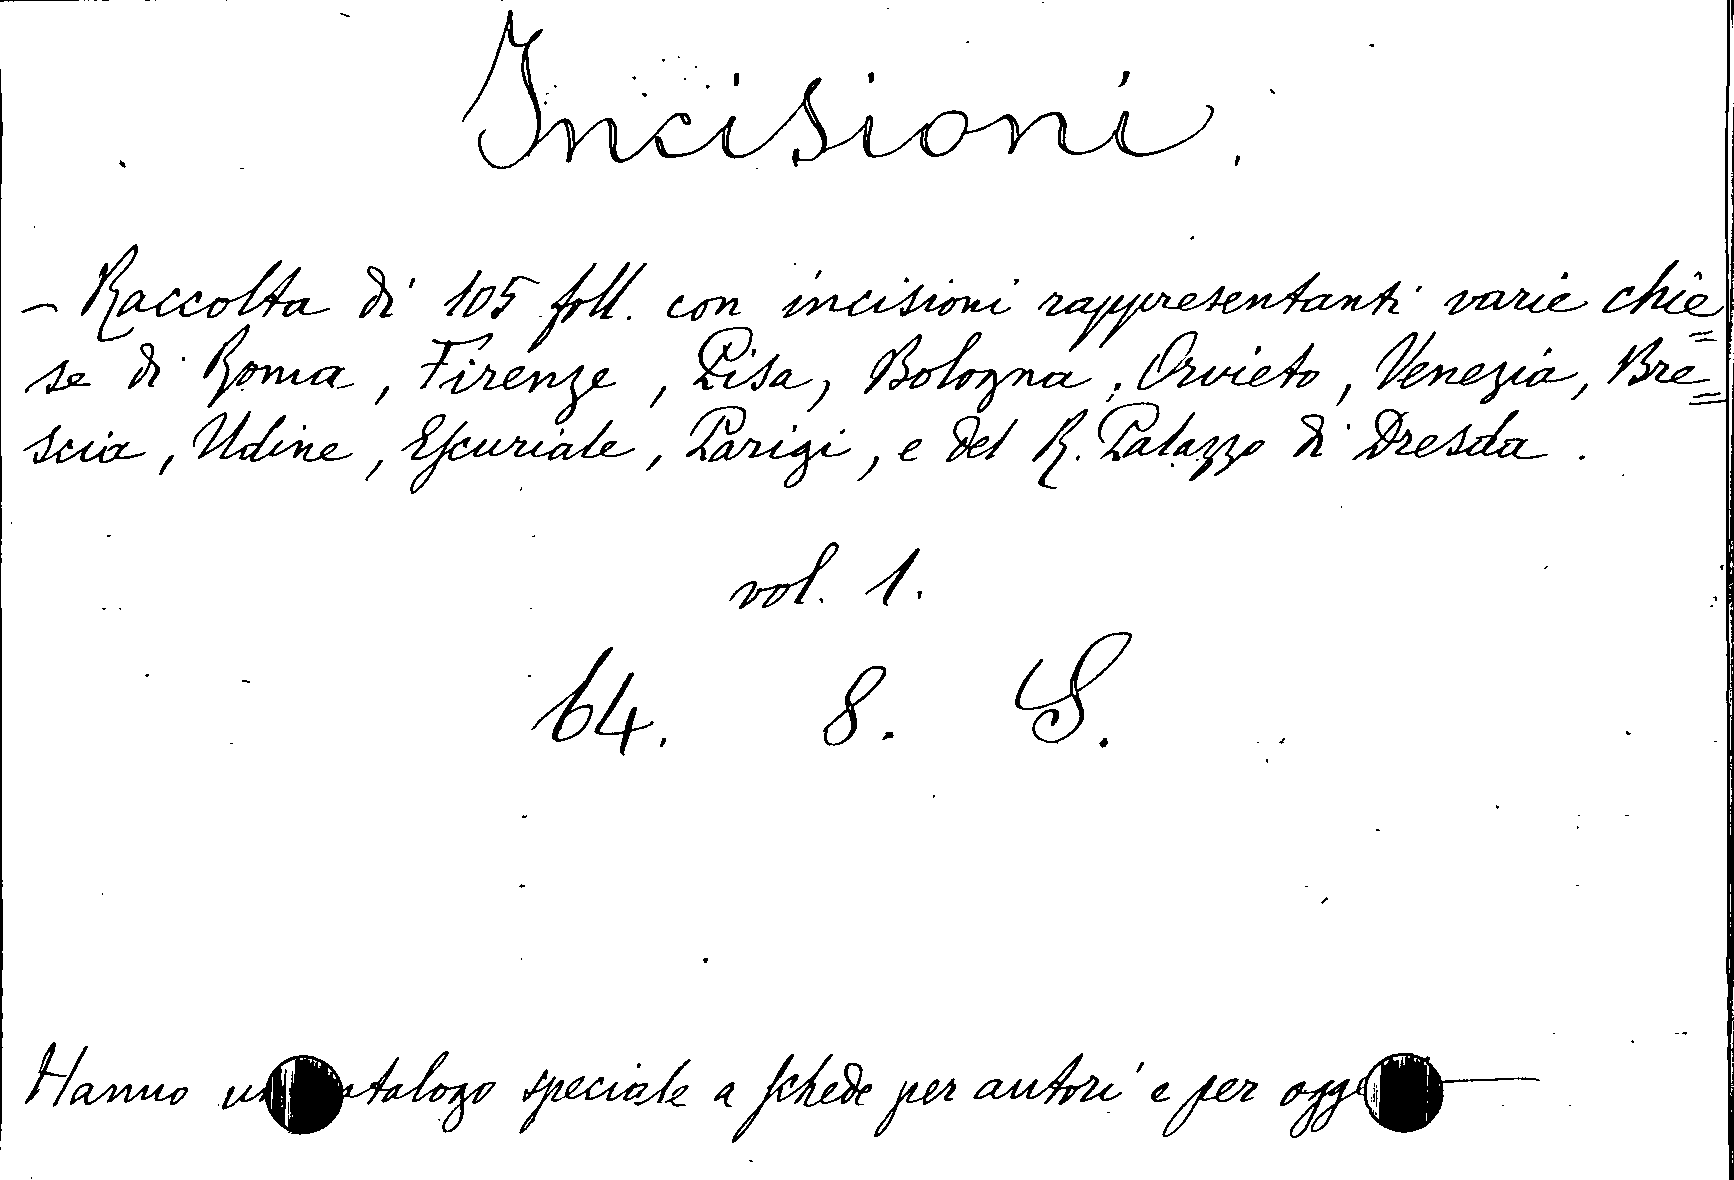 Incisioni.
— Raccolta di 105 foll. con incisioni rappresentanti varie chie=
se di Roma, Firenze, Pisa, Bologna, Orvieto, Venezia, Bre=
scia, Udine, Escuriale, Parigi, e del R. Palazzo di Dresda.
vol. 1.
64. 8. S.
Hanno speciale a schede per autori e per